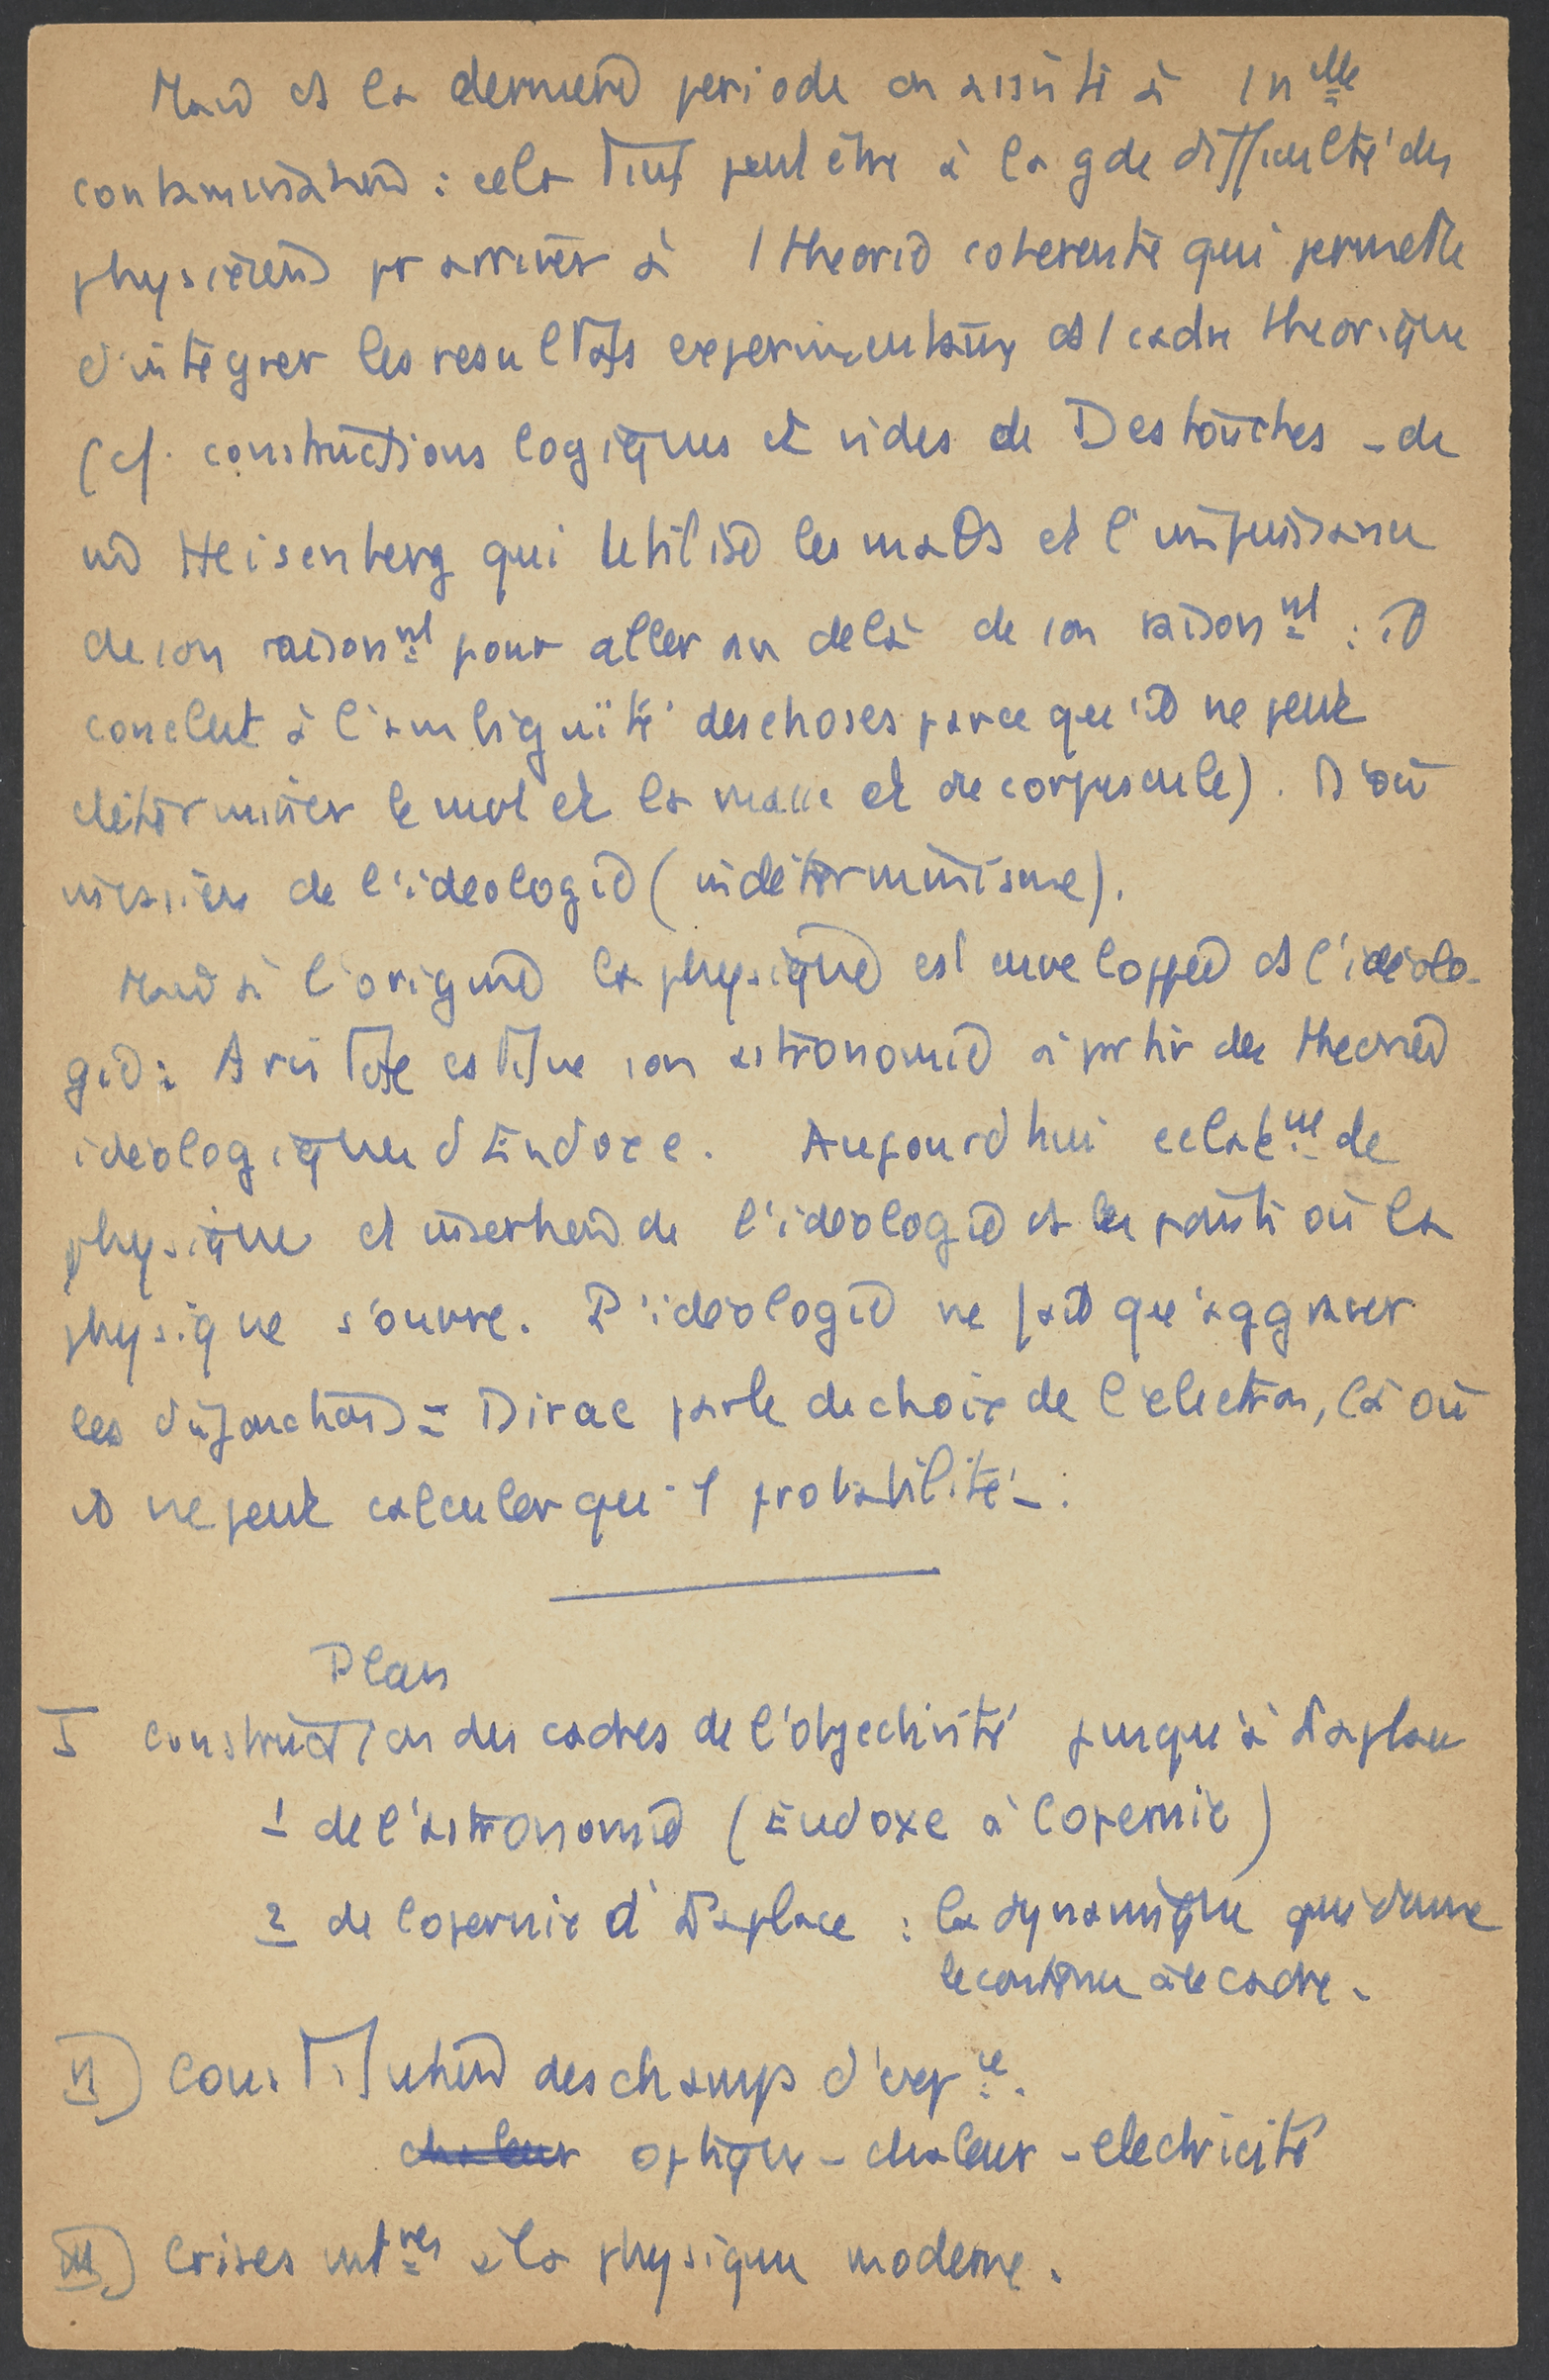 Mais ds la dernière periode on assiste à 1 nlle
contamination : cela tient peut être à la gde difficulté des
physiciens pr arriver à 1 théorie cohérente qui permette
d'intégrer les resultats experimentaux ds 1 cadre théorique
(cf. constructions logiques et vides de Destouches - de
Heisenberg qui utilise les maths et l'impuissance
de son raisonnt pour aller au delà de son raisonnt : il
conclut à l'ambiguïté des choses parce qu'il ne peut
déterminer le mvt et la masse et de corpuscule). D'où
de l'idéologie (indéterminisme).
Mais à l'origine la physique est enveloppée ds l'idéolo-
gie : Aristote estime son astronomie à partir des théories
idéologiques d'Eudoxe. Aujourd'hui eclatemt de
physique et insertion de l'idéologie ds les points où la
physique s'ouvre. L'idéologie ne fait qu'aggraver
les disjonctions = Dirac parle de choix de l'électron, là où
il ne peut calculer qu'1 probabilité - .
Plan
I construction des cadres de l'objectivité jusqu'à Laplace
1 de l'astronomie (Eudoxe à Copernic)
2 de Copernic à Laplace : la dynamique qui donne
le contenu à ce cadre.
II) Constitution des champs d'expce.
chaleur optique - chaleur - electricité
III) Crises intnes à la physique moderne.